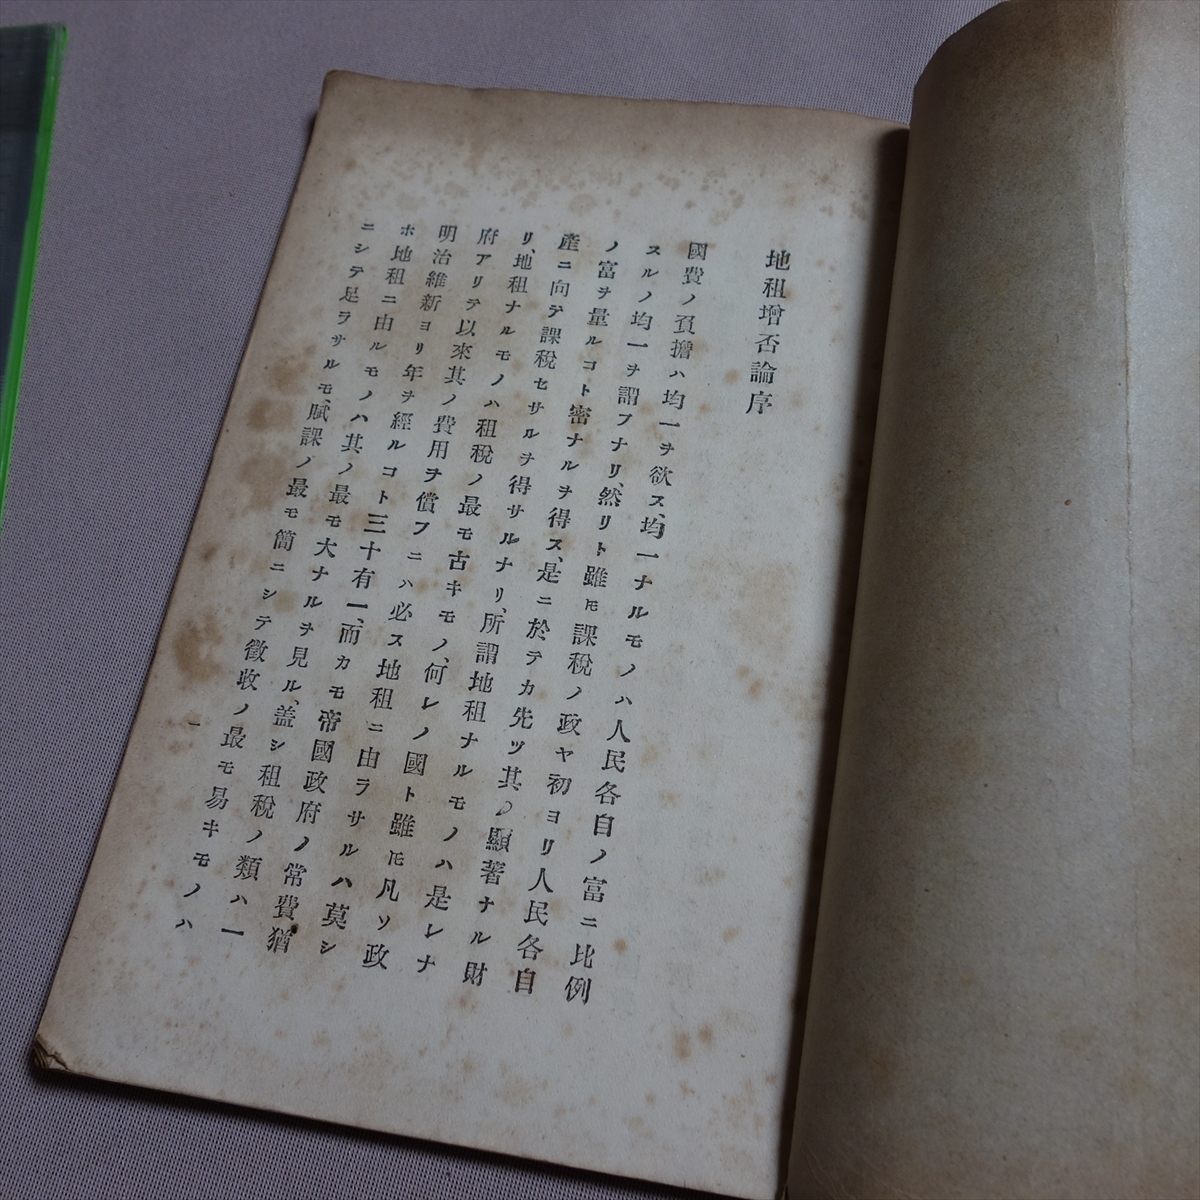 地租增否論序
國費ノ負擔ハ均一ヲ欲ス、均一ナルモノハ人民各自ノ富ニ比例
スルノ均一ヲ謂フナリ、然リト雖𪜈課稅ノ政ヤ初ヨリ人民各自
ノ富ヲ量ルコト密ナルヲ得ス、是ニ於テカ先ツ其ノ顯著ナル財
產ニ向テ課稅セサルヲ得サルナリ、所謂地租ナルモノハ是レナ
リ、地租ナルモノハ租稅ノ最モ古キモノ、何レノ國ト雖𪜈凡ソ政
府アリテ以來其ノ費用ヲ償フニハ必ス地租ニ由ラサルハ莫シ
明治維新ヨリ年ヲ經ルコト三十有一、而カモ帝國政府ノ常費猶
ホ地租ニ由ルモノハ其ノ最モ大ナルヲ見ル、蓋シ租稅ノ類ハ一
ニシテ足ラサルモ、賦課ノ最モ簡ニシテ徵收ノ最モ易キモノハ
一